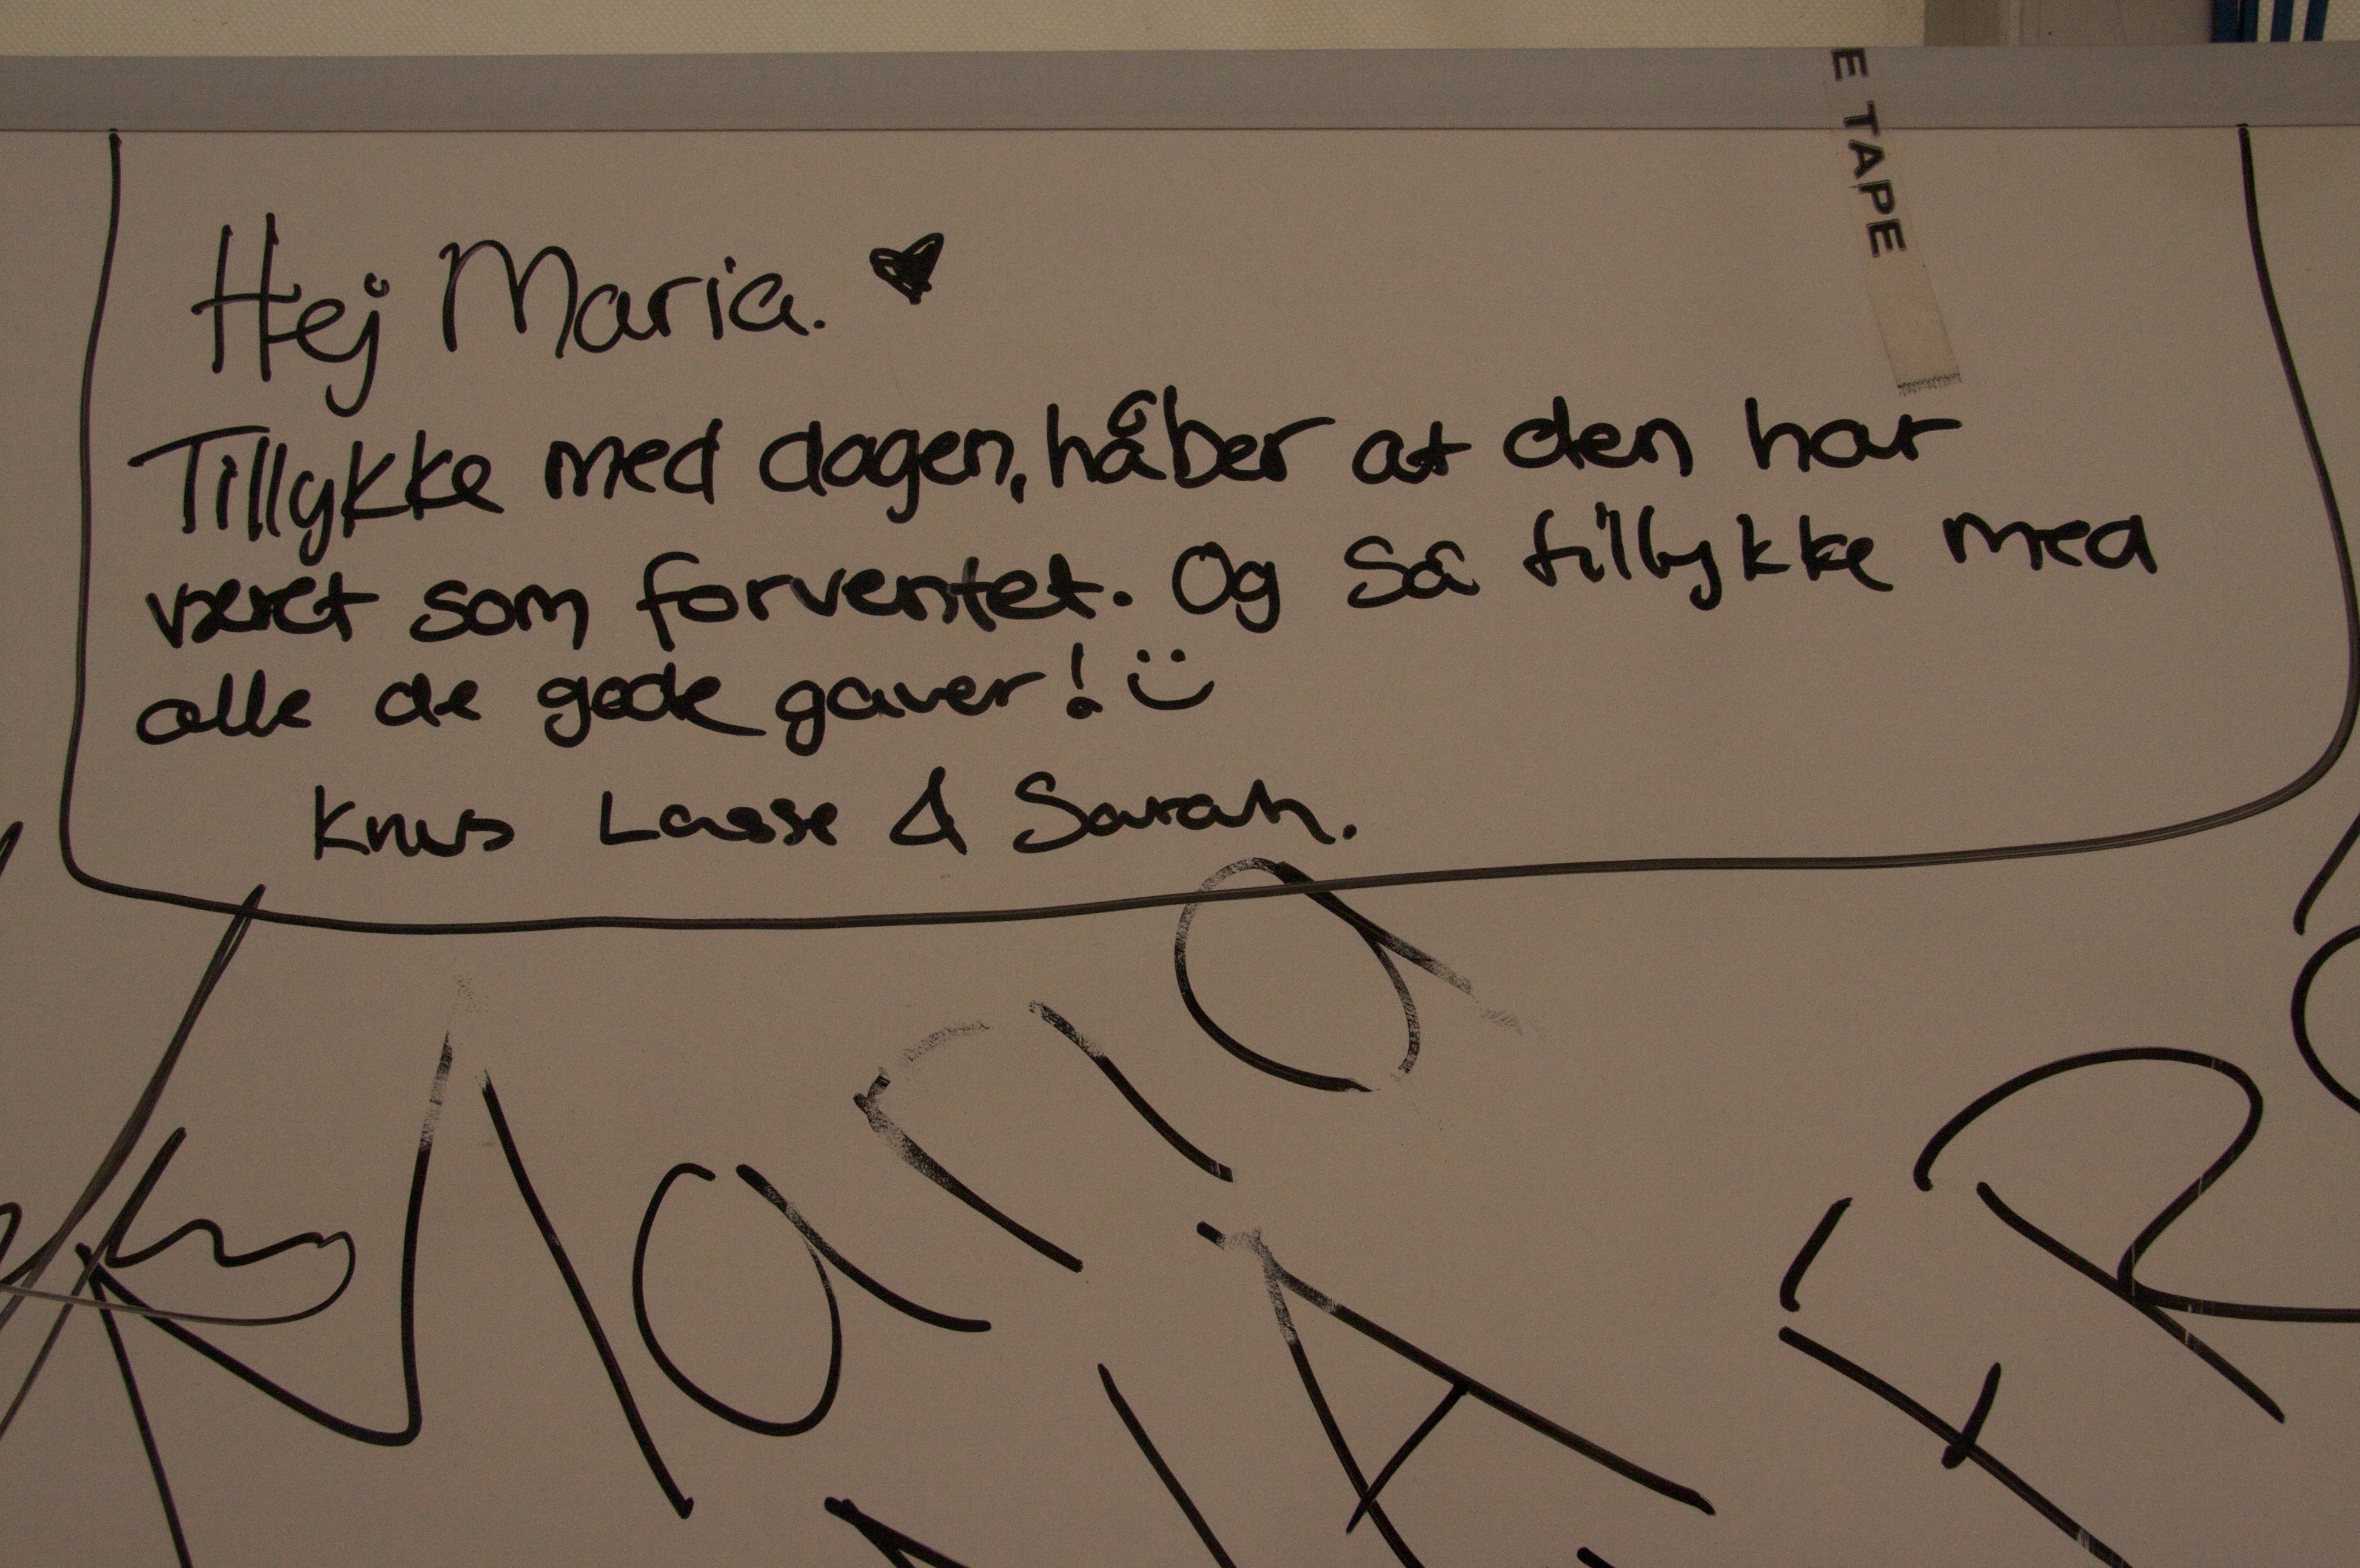 E TAPE
Hej Maria. ♥
Tillykke med dagen, håber at den har
været som forventet. Og så tillykke med
alle de gode gaver! :)
Knus Lasse & Sarah.
Maria